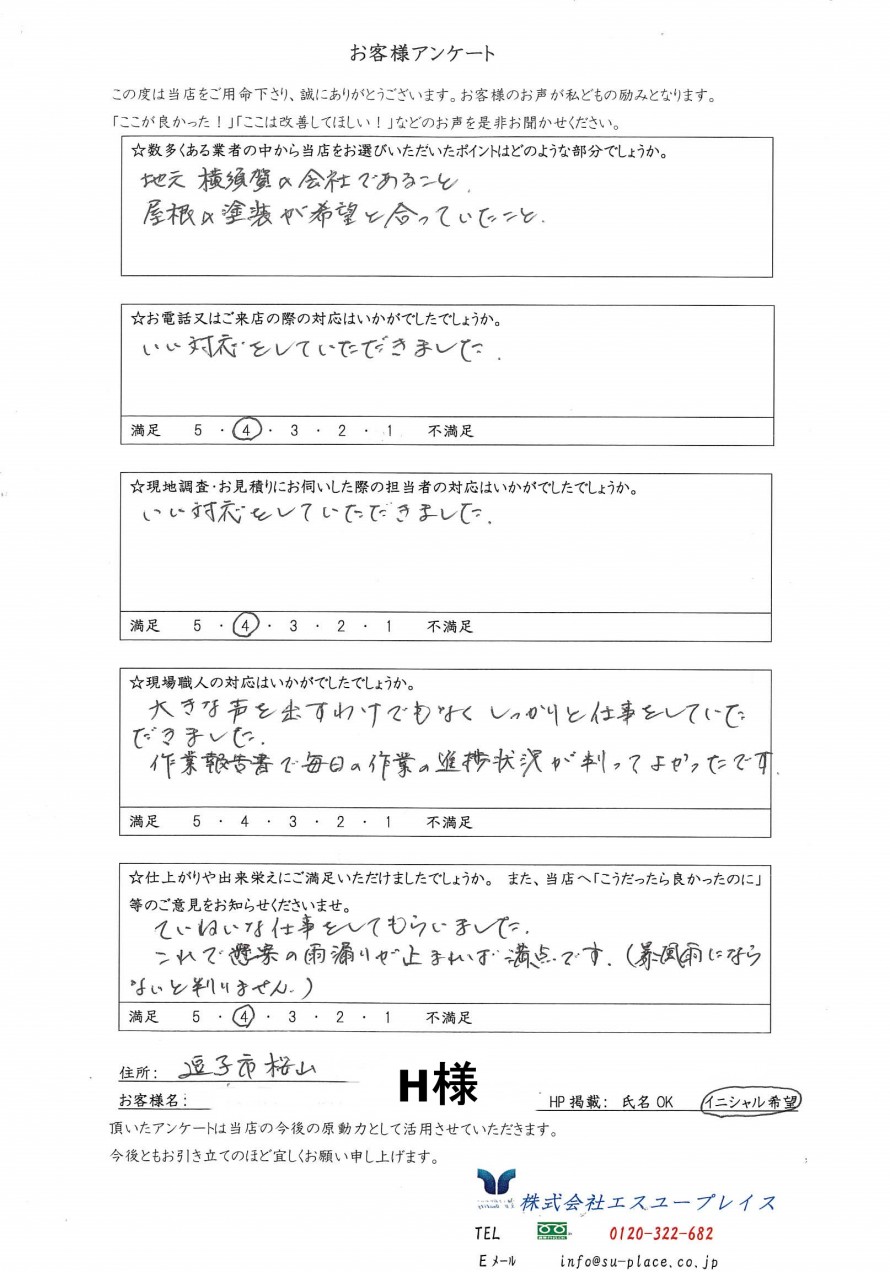 お客様アンケート
この度は当店をご用命下さり、誠にありがとうございます。お客様のお声が私どもの励みとなります。
「ここが良かった！」「ここは改善してほしい！」などのお声を是非お聞かせください。
☆数多くある業者の中から当店をお選びいただいたポイントはどのような部分でしょうか。
地元 横須賀の会社であること.
屋根の塗装が希望と合っていたこと.
☆お電話又はご来店の際の対応はいかがでしたでしょうか。
いい対応をしていただきました.
満足 5 ・ 4 ・ 3 ・ 2 ・ 1 不満足
☆現地調査・お見積りにお伺いした際の担当者の対応はいかがでしたでしょうか。
いい対応をしていただきました.
満足 5 ・ 4 ・ 3 ・ 2 ・ 1 不満足
☆現場職人の対応はいかがでしたでしょうか。
大きな声を出すわけでもなくしっかりと仕事をしていた
だきました.
作業報告書で毎日の作業の進捗状況が判ってよかったです
満足 5 ・ 4 ・ 3 ・ 2 ・ 1 不満足
☆仕上がりや出来栄えにご満足いただけましたでしょうか。 また、当店へ「こうだったら良かったのに」
等のご意見をお知らせくださいませ。
ていねいな仕事をしてもらいました.
これで懸案の雨漏りが止まれば満点です.(暴風雨になら
ないと判りません.)
満足 5 ・ 4 ・ 3 ・ 2 ・ 1 不満足
住所: 逗子市桜山
お客様名: H様
HP掲載: 氏名OK イニシャル希望
頂いたアンケートは当店の今後の原動力として活用させていただきます。
今後ともお引き立てのほど宜しくお願い申し上げます。
株式会社エスユープレイス
TEL 0120-322-682
Eメール info@su-place.co.jp